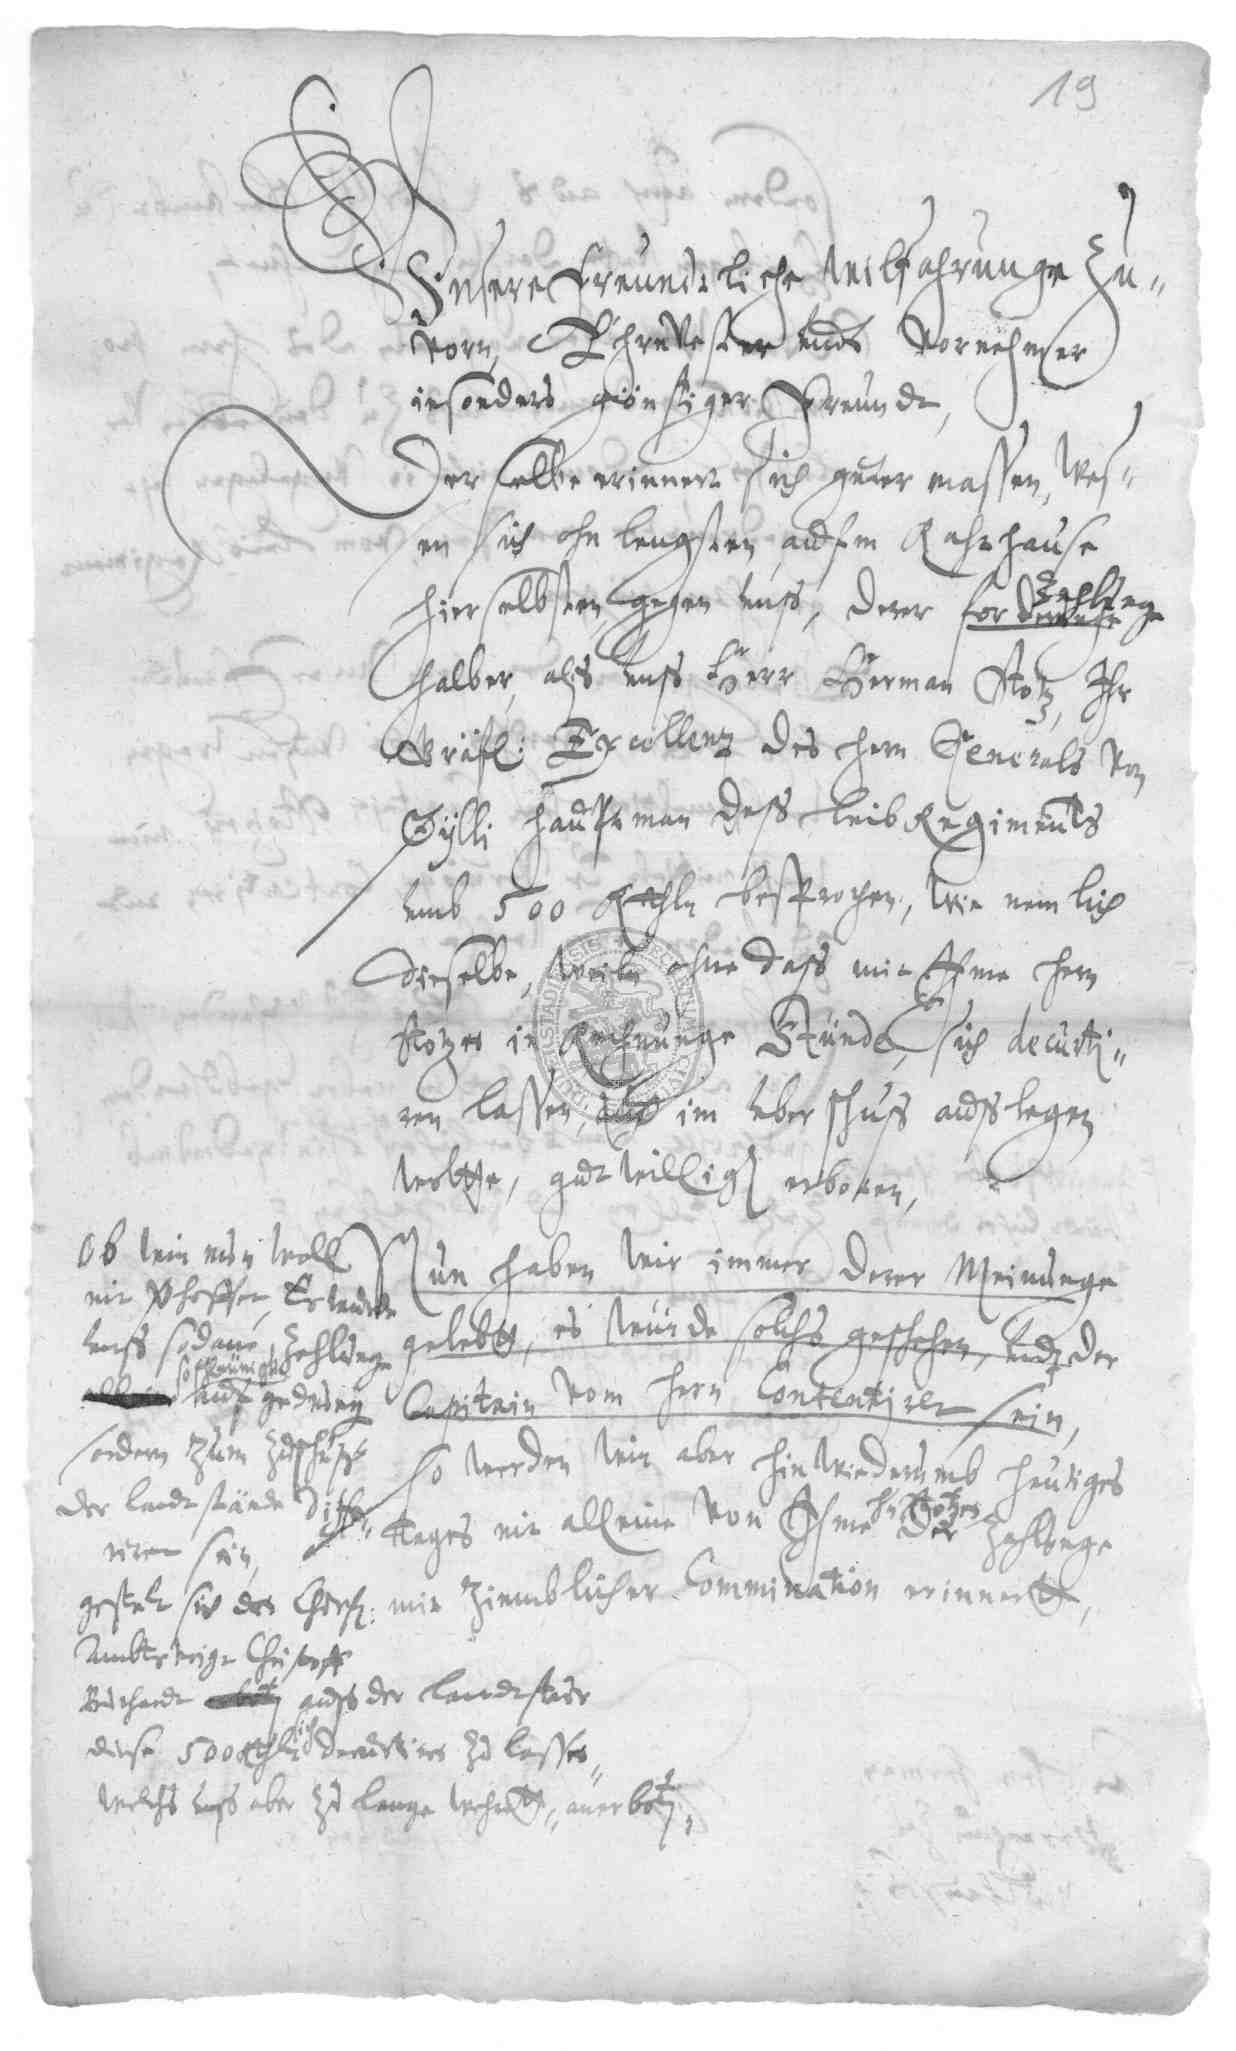 19
Unsere Freundtliche Wilfahrunge Zu„
vorn, Ehrnvester undt Vornehmer
insonders günstiger Freundt,
Derselbe erinnert sich guter massen, wes„
sen sich ohn lengsten aufm Rahthause
hierselbsten, gegen unss, derer forderunge Zahlunge
halber, alss unss Herr Herman Stotz, Ihr
Gräfl: Excellenz des hern Generals von
Tylli haubtman dess leib Regiments
umb 500 Rthlr besprochen, wie nemlich
dieselbe, weiln ohne dass mit Ihme hern
Stotzen in Rechnunge Stünde, Er sich decurti„
ren lassen, undt im uberschuss ausslegen
wolte, gudtwillig erboten,
Nun haben wir immer derer Meinunge
gelebtt, es würde solchs geschehen, undt der
Capitein vom hern Contentiret sein,
so werden wir aber hinwiederumb heutiges
tages nit alleine von Ihme h: Stotzen der Zahlunge
mit Ziemblicher Commination erinnertt,
Ob wir nun woll
nit verhoffet, Er würde
unss sodane Zahlunge
so schleunigst
gedrungen
sondern zum Zuschuss
der landtstände
riret sein,
gestalt sich der Churf:
Ambtsvoigt Christoff
Burchardt auss der landtsteur
diese 500 Rthlr sich decurtiren zu lassen„
welchs unss aber zu lange wehrett, anerbotten,